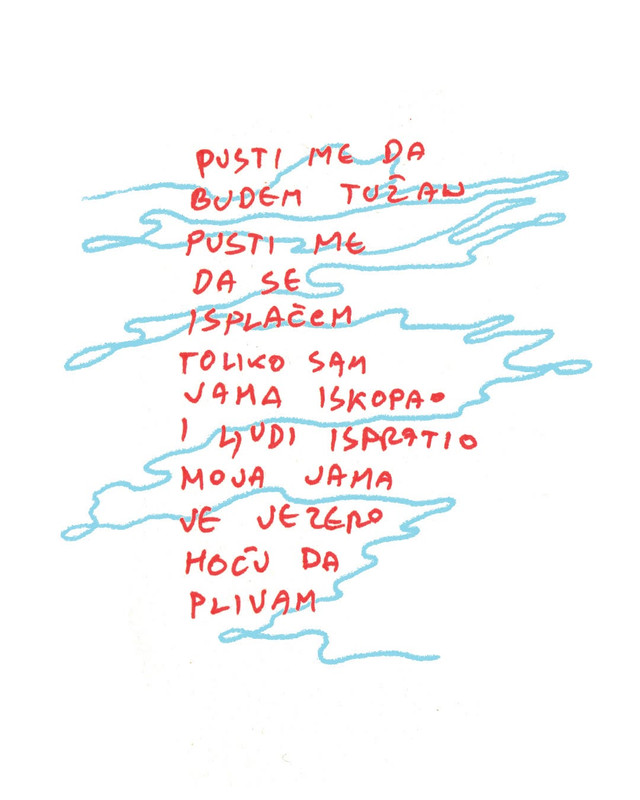 PUSTI ME DA
BUDEM TUŽAN
PUSTI ME
DA SE
ISPLAČEM
TOLIKO SAM
JAMA ISKOPAO
I LJUDI ISPRATIO
MOJA JAMA
JE JEZERO
HOĆU DA
PLIVAM